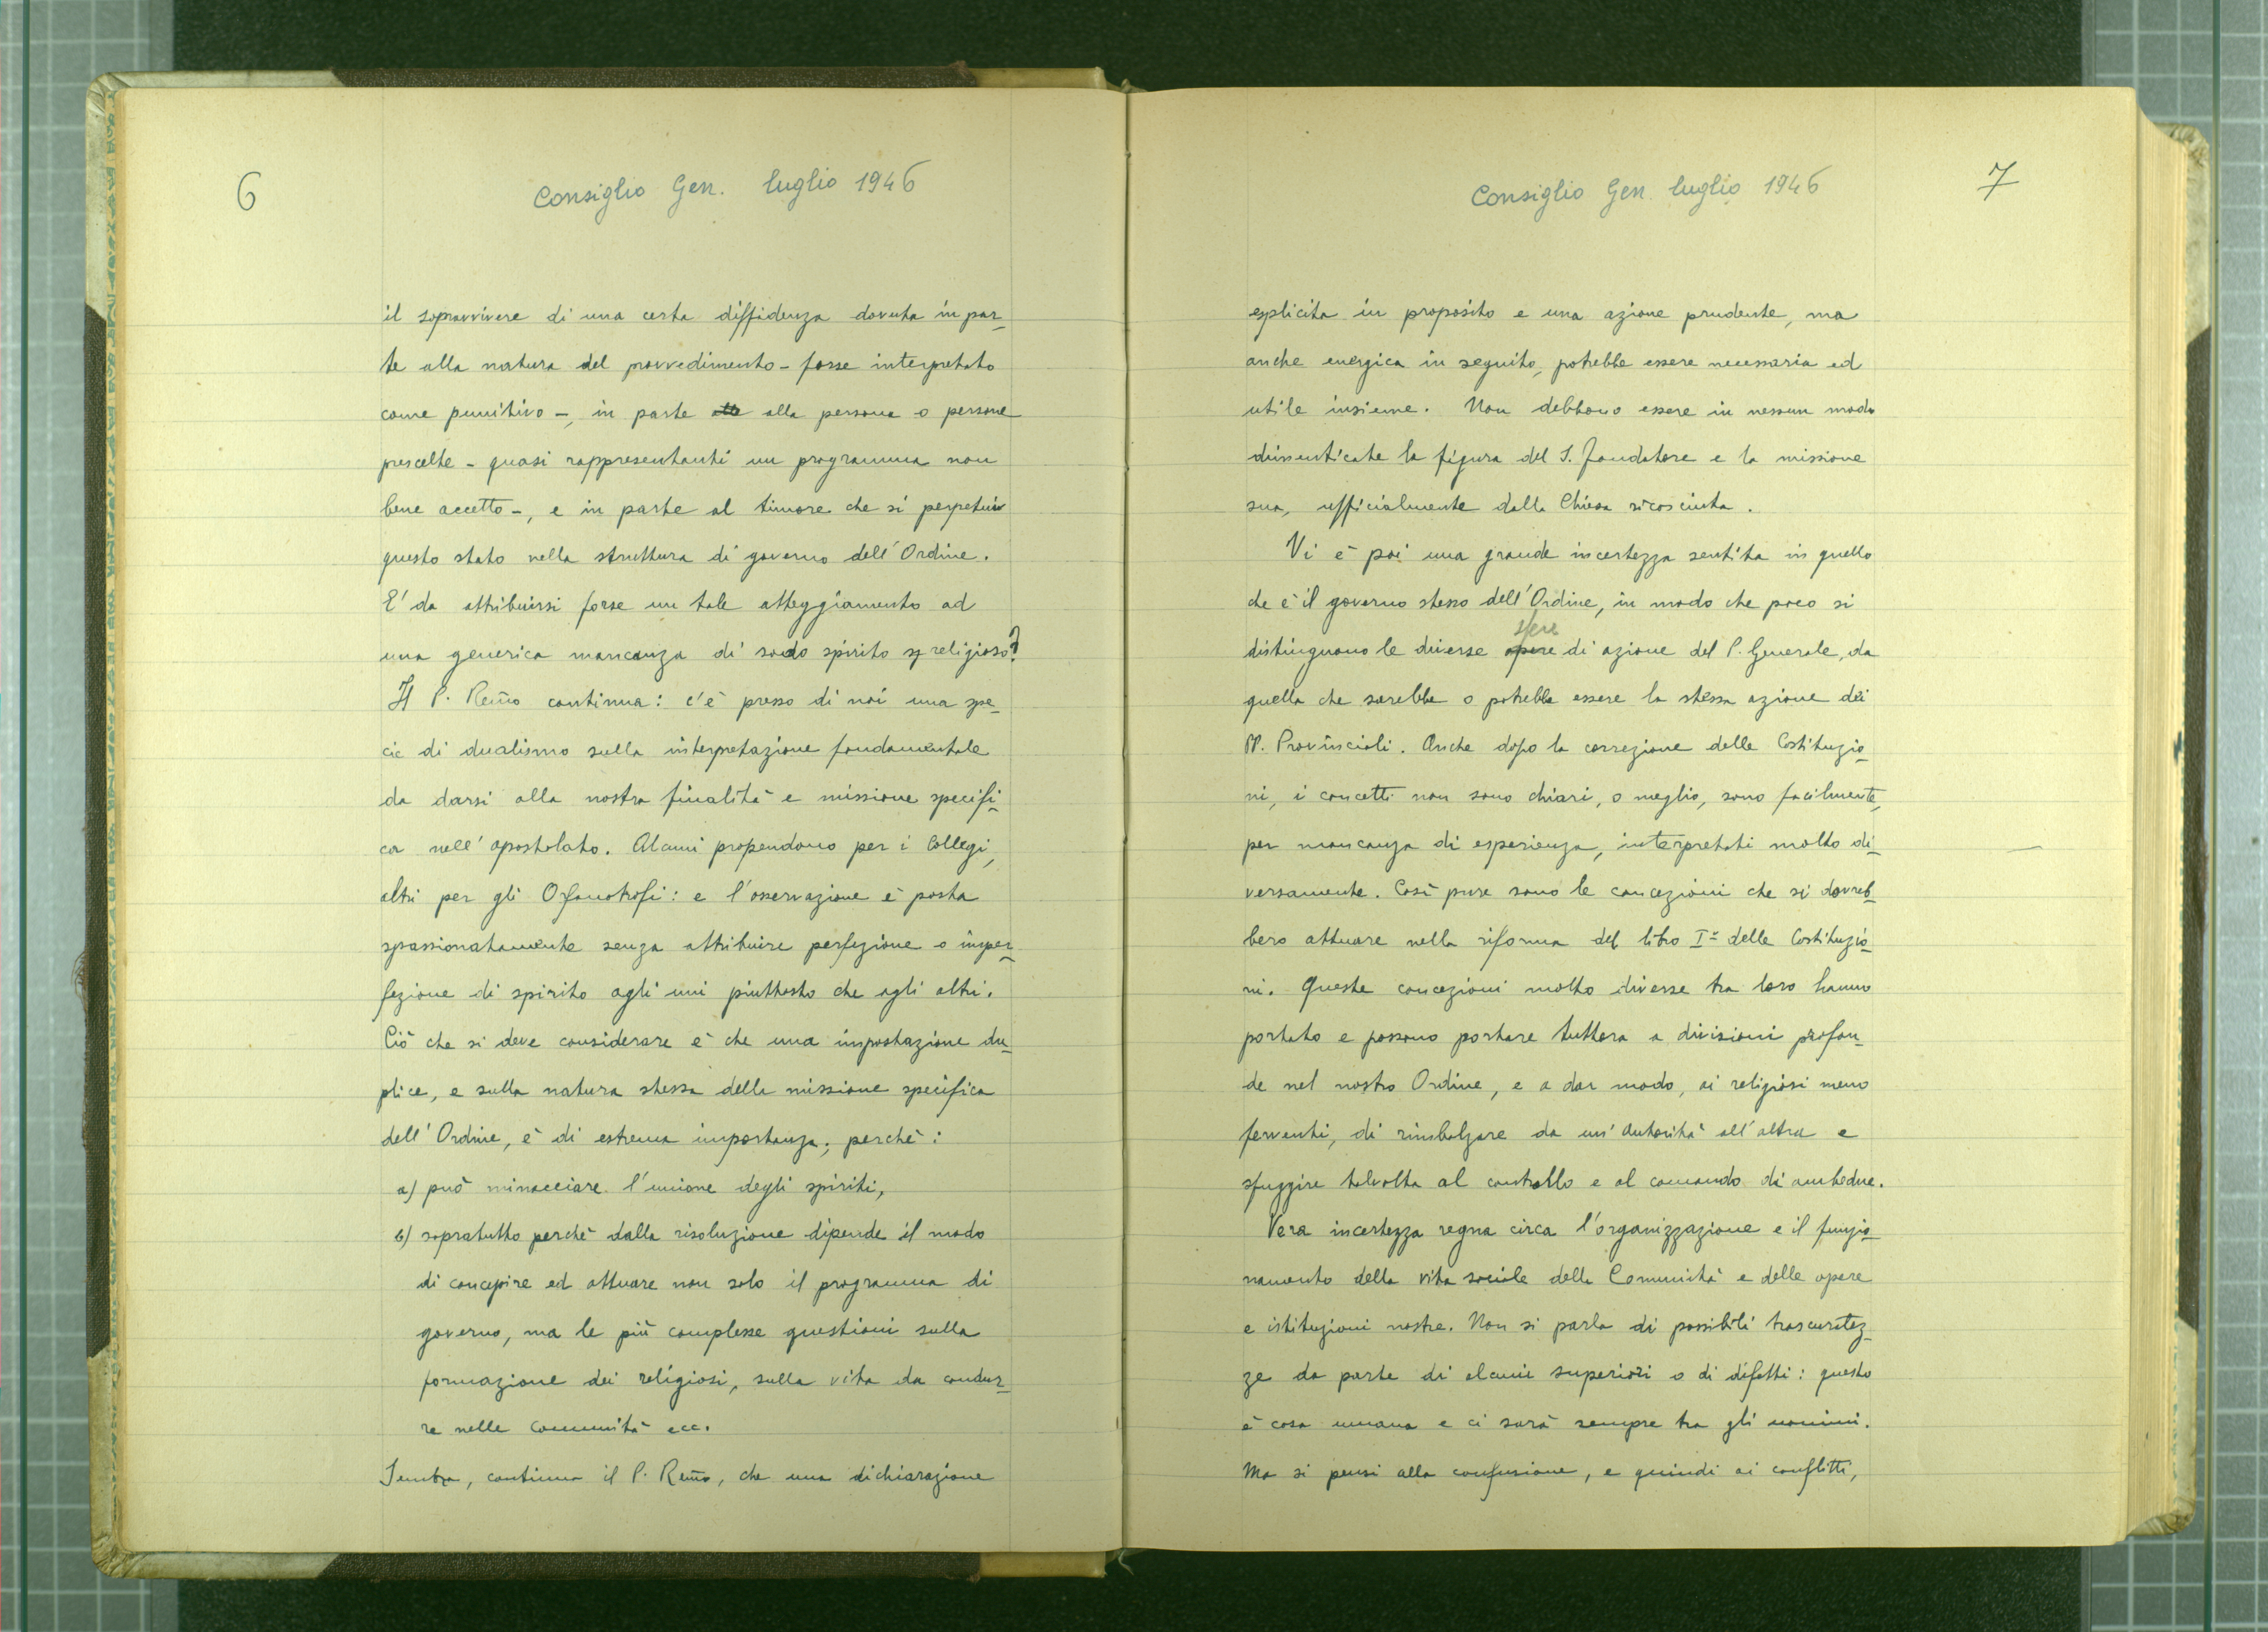 6
Consiglio Gen. luglio 1946
il sopravvivere di una certa diffidenza dovuta in par-
te alla natura del provvedimento - fosse interpretato
come punitivo -, in parte alle alla persona o persone
prescelte - quasi rappresentanti un programma non
bene accetto -, e in parte al timore che si perpetui
questo stato nella struttura di governo dell'Ordine.
E' da attribuirsi forse un tale atteggiamento ad
una generica mancanza di sodo spirito sp religioso?
Il P. Rev̄mo continua: c'è presso di noi una spe-
cie di dualismo sulla interpretazione fondamentale
da darsi alla nostra finalità e missione specifi-
ca nell'apostolato. Alcuni propendono per i Collegi,
altri per gli Orfanotrofi: e l'osservazione è posta
spassionatamente senza attribuire perfezione o imper-
fezione di spirito agli uni piuttosto che agli altri.
Ciò che si deve considerare è che una impostazione du-
plice, e sulla natura stessa della missione specifica
dell'Ordine, è di estrema importanza; perchè:
a) può minacciare l'unione degli spiriti,
b) sopratutto perchè dalla risoluzione dipende il modo
di concepire ed attuare non solo il programma di
governo, ma le più complesse questioni sulla
formazione dei religiosi, sulla vita da condur-
re nelle comunità ecc.
Sembra, continua il P. Rev̄mo, che una dichiarazione
7
Consiglio Gen. luglio 1946
esplicita in proposito e una azione prudente, ma
anche energica in seguito, potrebbe essere necessaria ed
utile insieme. Non debbono essere in nessun modo
dimenticate la figura del S. Fondatore e la missione
sua, ufficialmente dalla Chiesa riconosciuta.
Vi è poi una grande incertezza sentita in quello
che è il governo stesso dell'Ordine, in modo che poco si
sfere
distinguono le diverse opere di azione del P. Generale, da
quella che sarebbe o potrebbe essere la stessa azione dei
PP. Provinciali. Anche dopo la correzione delle Costituzio-
ni, i concetti non sono chiari, o meglio, sono facilmente,
per mancanza di esperienza, interpretati molto di-
versamente. Così pure sono le concezioni che si dovreb-
bero attuare nella riforma del libro I° delle Costituzio-
ni. Queste concezioni molto diverse tra loro hanno
portato e possono portare tuttora a divisioni profon-
de nel nostro Ordine, e a dar modo, ai religiosi meno
ferventi, di rimbalzare da un'Autorità all'altra e
sfuggire talvolta al controllo e al comando di ambedue.
Vera incertezza regna circa l'organizzazione e il funzio-
namento della vita sociale delle Comunità e delle opere
e istituzioni nostre. Non si parla di possibili trascuratez-
ze da parte di alcuni superiori o di difetti: questo
è cosa umana e ci sarà sempre tra gli uomini.
Ma si pensi alla confusione, e quindi ai conflitti,